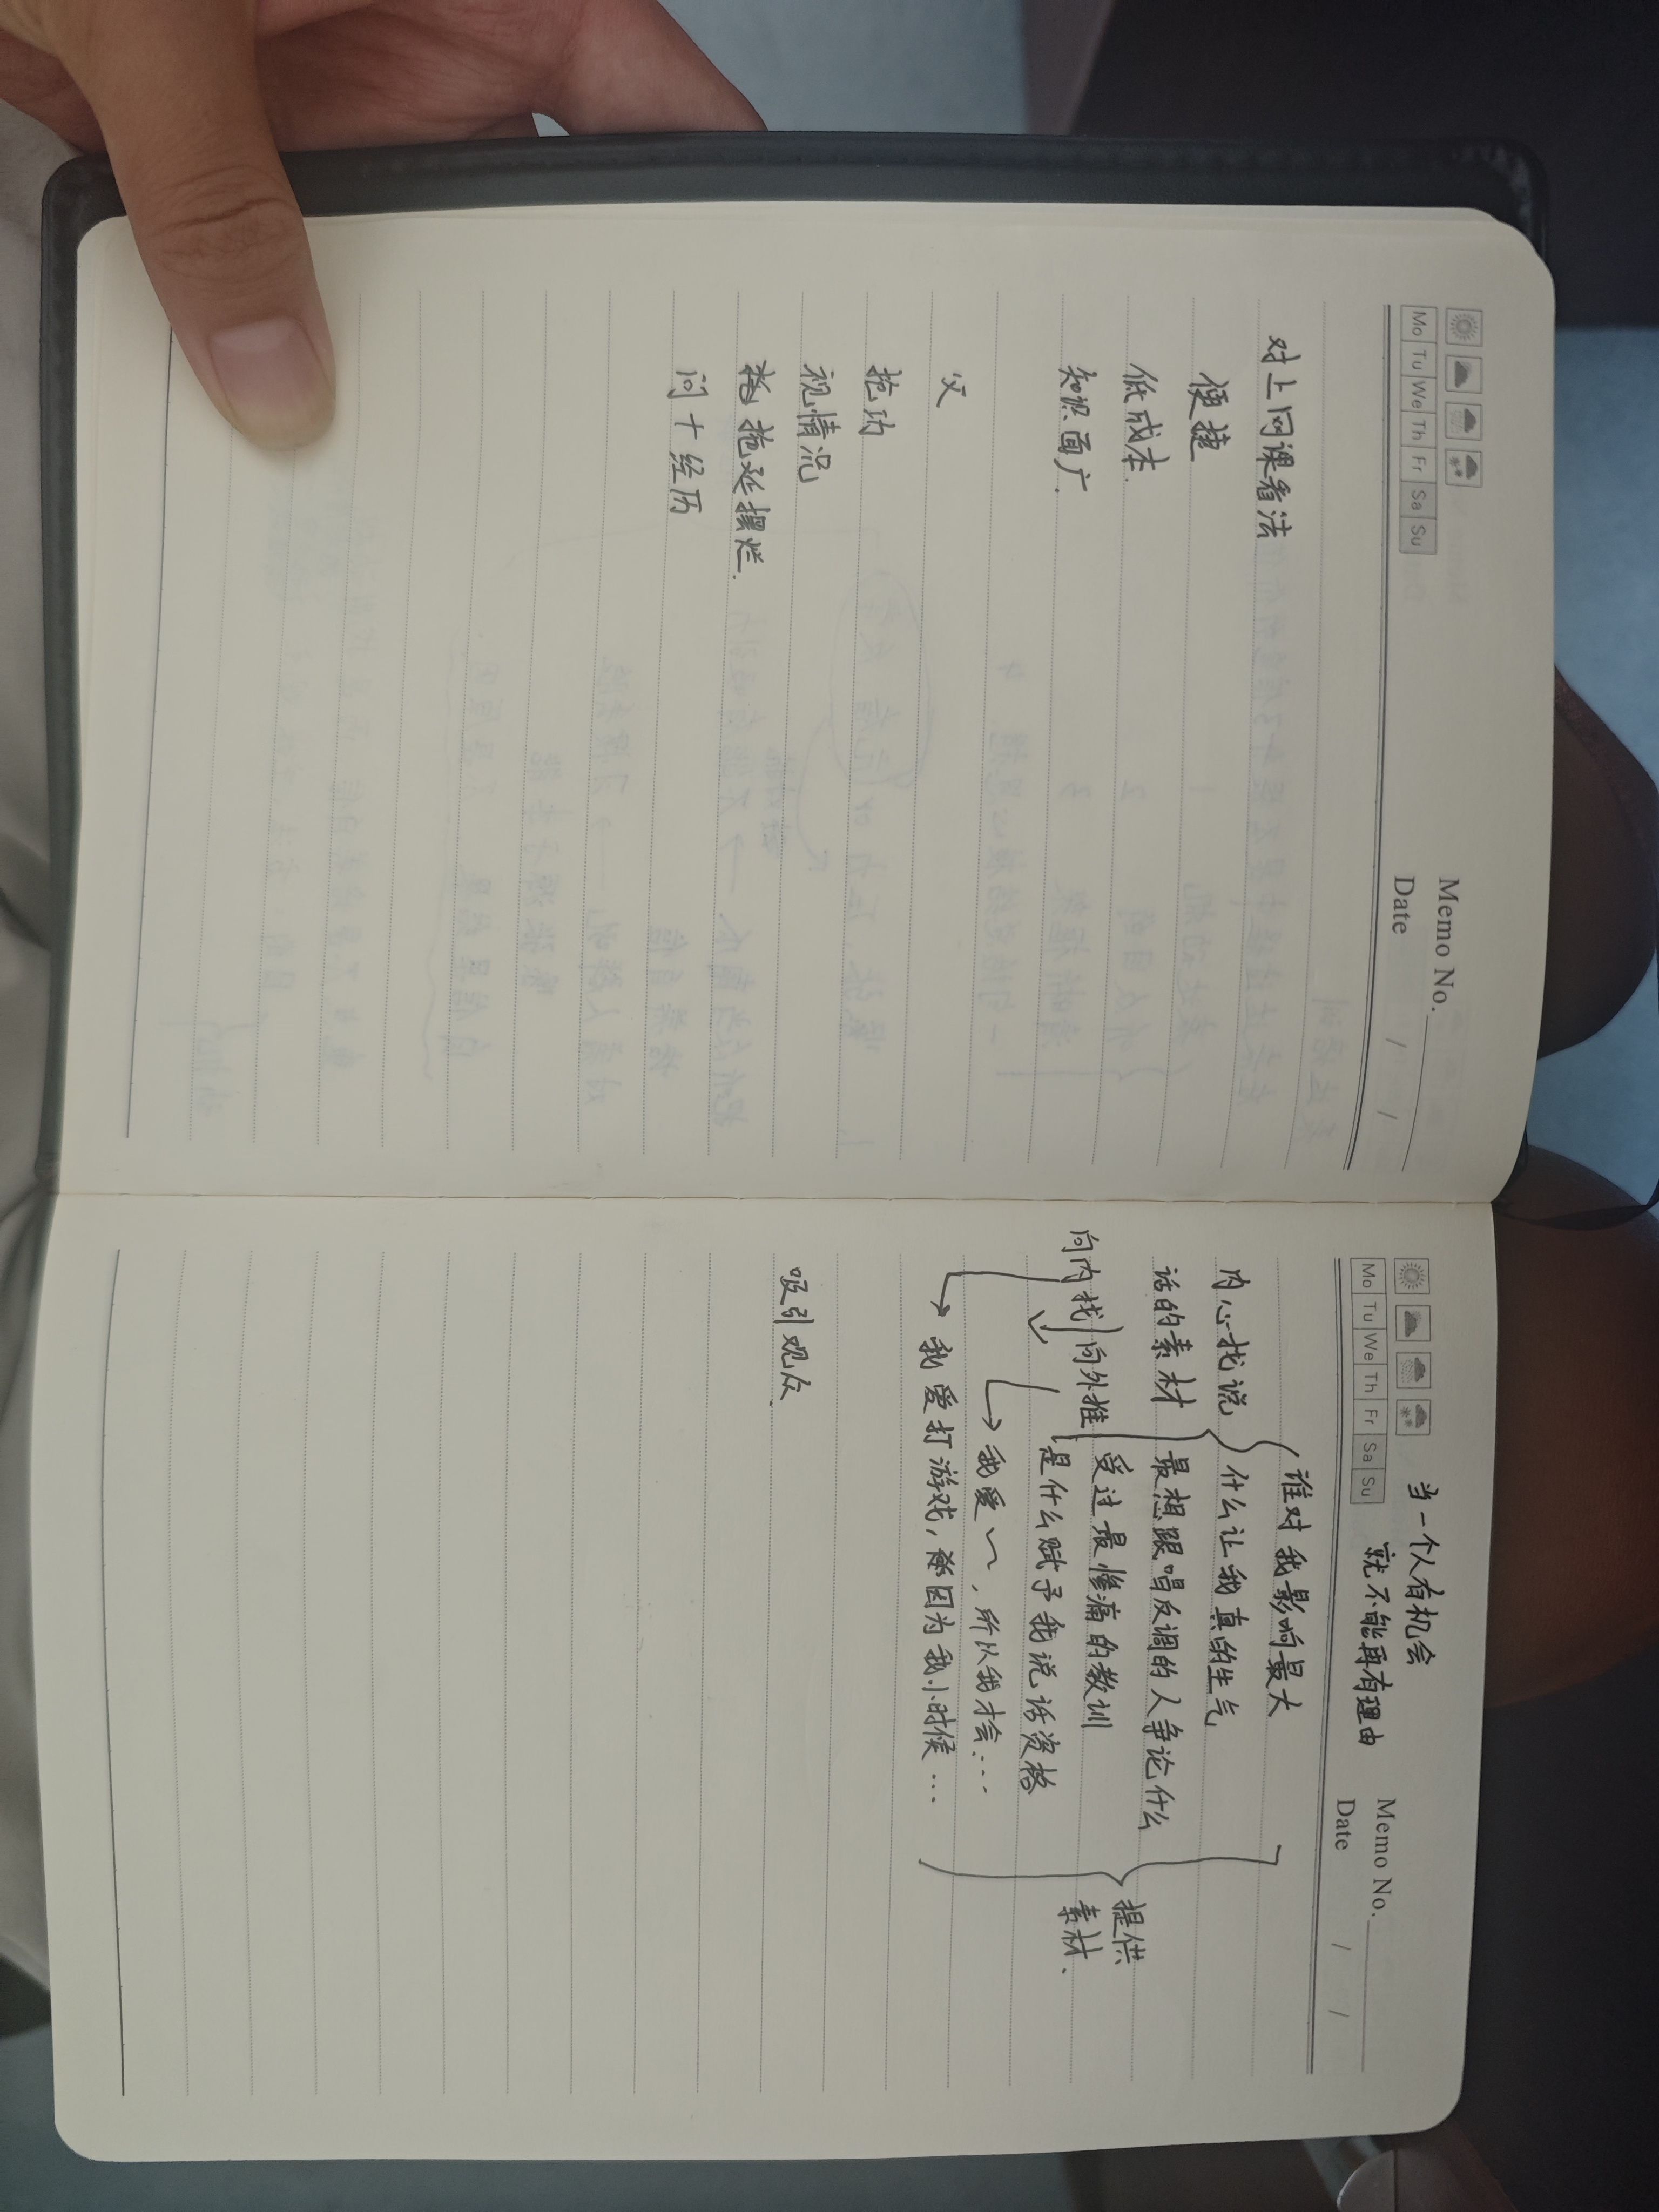 Memo No.
Mo Tu We Th Fr Sa Su
Date / /
对上网课看法
便捷
低成本.
知识面广.
父
视情况
拖延摆烂.
问十经历
当一个人有机会
就不能再有理由
Memo No.
Mo Tu We Th Fr Sa Su
Date / /
谁对我影响最大
内心找说
什么让我真的生气
话的素材
最想跟唱反调的人争论什么
向内找 向外推
受过最惨痛的教训
是什么赋予我说话资格
提供
素材.
我爱～,所以我才会...
我爱打游戏,因为我小时候...
吸引观众.